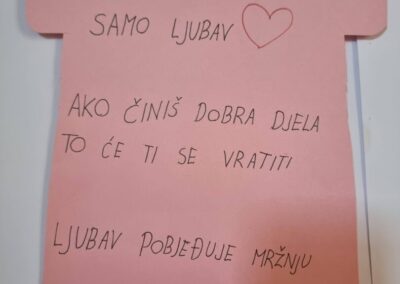 SAMO LJUBAV
AKO ČINIŠ DOBRA DJELA
TO ĆE TI SE VRATITI
LJUBAV POBJEĐUJE MRŽNJU